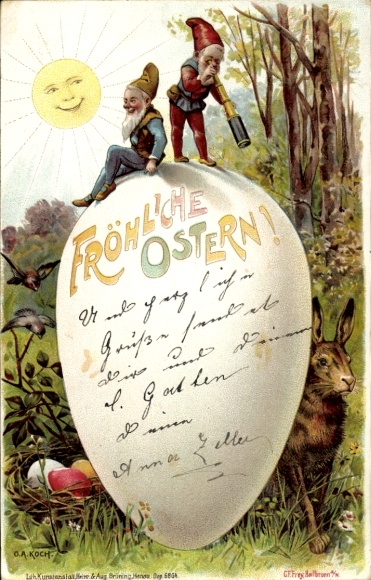 FRÖHLICHE
OSTERN!
Und herzliche
Grüße sendet
dir und deinem
l. Gatten
deine
Anna Zeller
O. A. KOCH.
Lith. Kunstanstalt Heinr. & Aug. Brüning, Hanau. Dep. 5804.
CF. Frey, Heilbronn a/N.